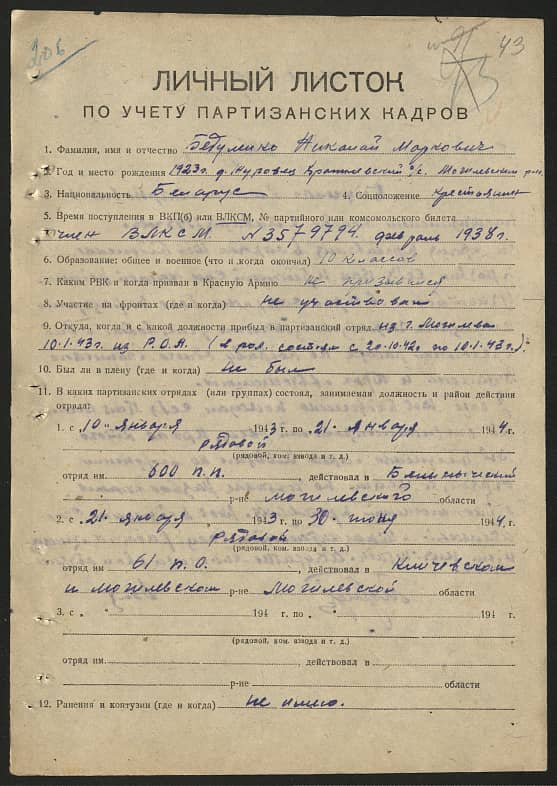 206
43
ЛИЧНЫЙ ЛИСТОК
ПО УЧЕТУ ПАРТИЗАНСКИХ КАДРОВ
1. Фамилия, имя и отчество Николай Маркович
2. Год и место рождения 1923г. д. с/с. Могилевский р-н.
3. Национальность Беларус 4. Соцположение крестьянин
5. Время поступления в ВКП(б) или ВЛКСМ, № партийного или комсомольского билета
член ВЛКСМ №3579794 февраль 1938г.
6. Образование общее и военное (что и когда окончил) 10 классов
7. Каким РВК и когда призван в Красную Армию не призывался
8. Участие на фронтах (где и когда) не участвовал
9. Откуда, когда и с какой должности прибыл в партизанский отряд из г. Могилева
10.1.43г. из Р.О.А. (в с 20.10.42г по 10.1.43г.).
10. Был ли в плену (где и когда) не был
11. В каких партизанских отрядах (или группах) состоял, занимаемая должность и район действия
отряда:
1. с 10 января 1943 г. по 21 января 1944 г.
рядовой
(рядовой, ком. взвода и т. д.)
отряд им. 600 п.п. действовал в Белыничский
р-не могилевского области
2. с 21 января 1943 г. по 30 июня 1944 г.
рядовой
(рядовой, ком. взвода и т. д.)
отряд им. 61 п.о. , действовал в Кличевском
и могилевском р-не Могилевской области
3. с 194 г. по 194 г.
(рядовой, ком. взвода и т. д.)
отряд им. , действовал в
р-не области
12. Ранения и контузии (где и когда) не имел.